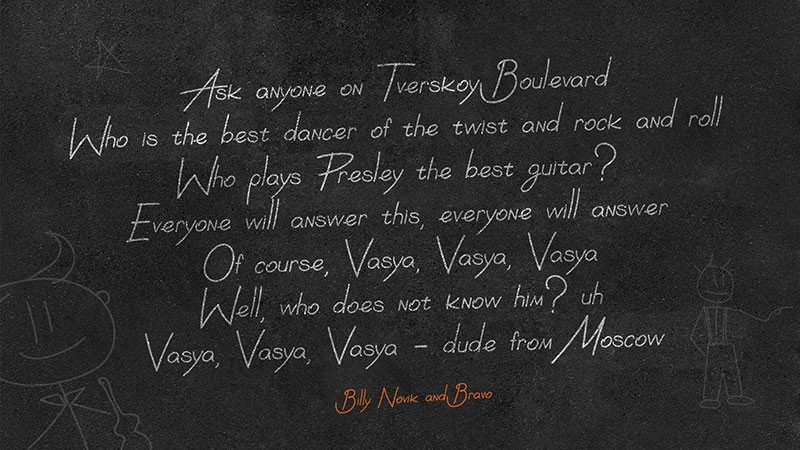 Ask anyone on Tverskoy Boulevard
Who is the best dancer of the twist and rock and roll
Who plays Presley the best guitar?
Everyone will answer this, everyone will answer
Of course, Vasya, Vasya, Vasya
Well, who does not know him? uh
Vasya, Vasya, Vasya – dude from Moscow
Billy Novik and Bravo